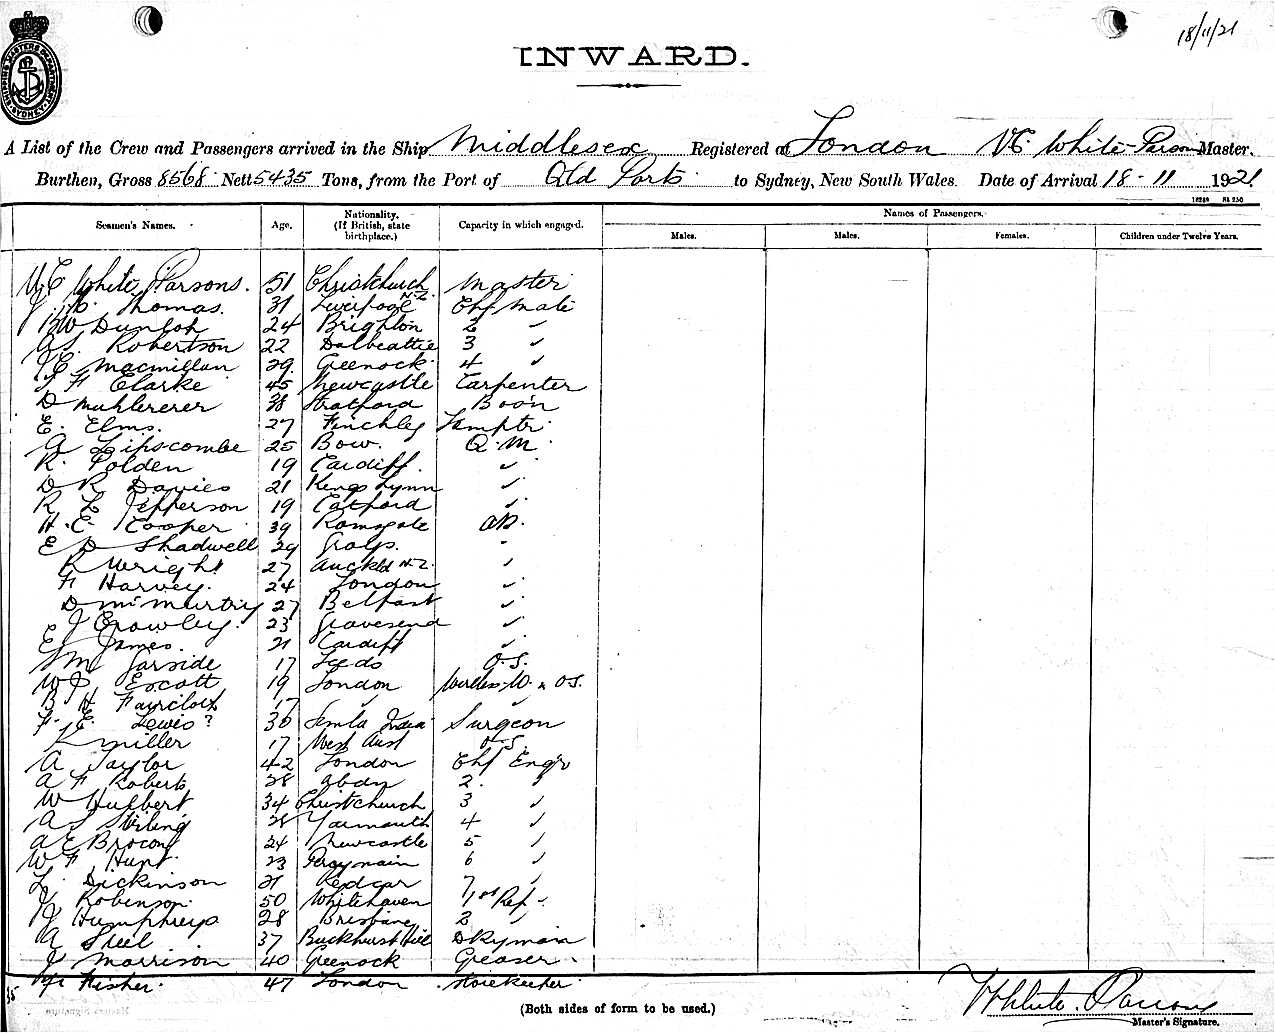 18/11/21
INWARD.
A List of the Crew and Passengers arrived in the Ship Middlesex Registered at London V C White-Parsons Master.
Burthen, Gross 8568 Nett 5435 Tons, from the Port of Qld Ports to Sydney, New South Wales. Date of Arrival 18-11 1921
Seamen's Names. Age. Nationality. (If British, state birthplace.) Capacity in which engaged. Names of Passengers.
Males. Males. Females. Children under Twelve Years.
White Parsons. 51 Christchurch N.Z. Master
Thomas. 31 Liverpool Chf Mate
BW Dunlop 24 Brighton 2 "
A S. Robertson 22 Dalbeattie 3 "
Macmillan 29 Greenock 4 "
F Clarke 45 Newcastle Carpenter
D 38 Stratford Bo'on
E. Elms. 27 Finchley
A Lipscombe 25 Bow. Q.M.
R. Polden 19 Cardiff. "
D R Davies 21 Kings Lynn "
R L Jefferson 19 Catford "
H. C. Cooper 39 Ramsgate AB.
E D Shadwell 29 Grays. "
R Wright 27 Auckld N.Z. "
F Harvey. 24 London "
D McMurtry 27 Belfast "
E J Crowley. 23 Gravesend "
E James. 21 Cardiff "
Wm Garside 17 Leeds O.S.
W J Escott 19 London Wireless W. & O.S.
B H 17 "
F. E. Lewis? 36 Simla India Surgeon
K Miller 17 West Aust O.S.
A Taylor 42 London Chf Engr
A F Roberts 28 2. "
W Hulbert 34 Christchurch 3 "
A S 28 Yarmouth 4 "
A E 24 Newcastle 5 "
W F Hunt 23 6 "
L. Dickinson 21 Redcar 7 "
J Robinson. 50 Whitehaven 1st Ref.
J Humphreys 28 Brisbane 2 "
A Steel 37 Buckhurst Hill Dkyman
J Morrison 40 Greenock Greaser
Fisher. 47 London Storekeeper
35
(Both sides of form to be used.)
White-Parsons
Master's Signature.